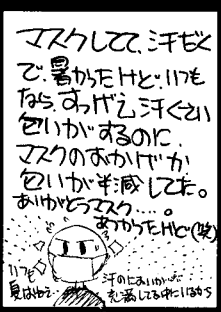 マスクしてて、汗だく
で、暑かったけど、いつも
なら、すっげえ汗くさい
匂いがするのに、
マスクのおかげか
匂いが半減してた。
ありがとうマスク....。
あつかったけど(笑)
いつも
夏はねえ…
汗のにおいが…
充満してる中にいるから